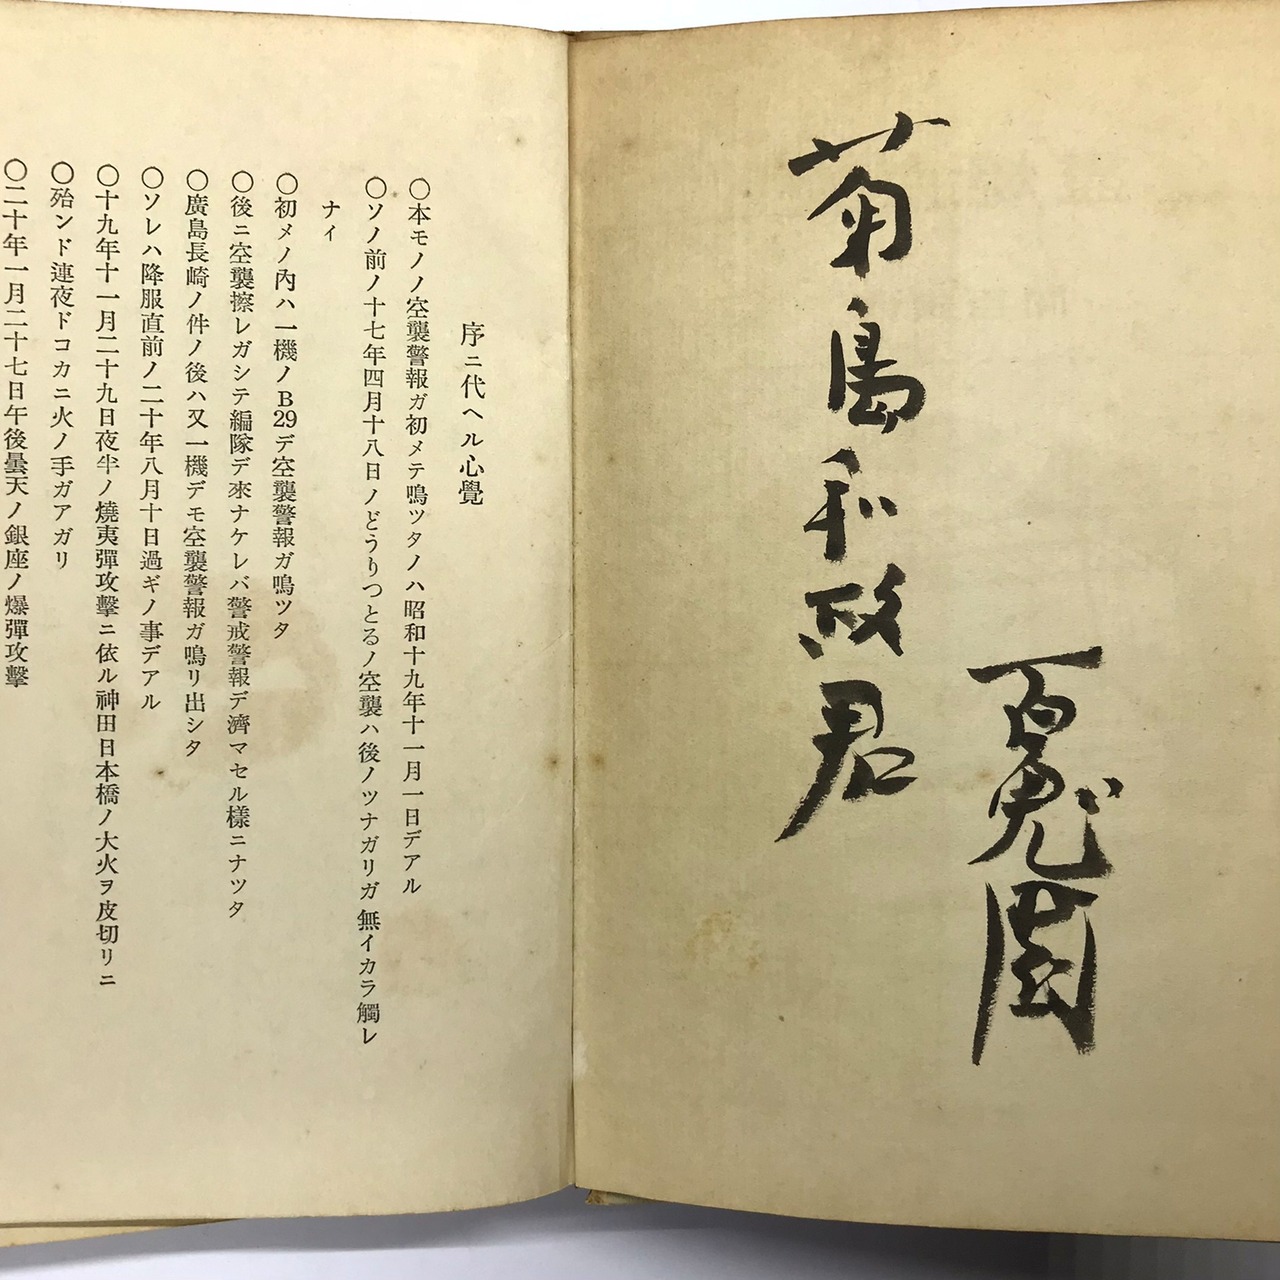 百鬼園
菊島和政君
序ニ代ヘル心覺
〇本モノノ空襲警報ガ初メテ鳴ツタノハ昭和十九年十一月一日デアル
〇ソノ前ノ十七年四月十八日ノどうりつとるノ空襲ハ後ノツナガリガ無イカラ觸レ
ナイ
〇初メノ內ハ一機ノB29デ空襲警報ガ鳴ツタ
〇後ニ空襲擦レガシテ編隊デ來ナケレバ警戒警報デ濟マセル樣ニナツタ
〇廣島長崎ノ件ノ後ハ又一機デモ空襲警報ガ鳴リ出シタ
〇ソレハ降服直前ノ二十年八月十日過ギノ事デアル
〇十九年十一月二十九日夜半ノ燒夷彈攻擊ニ依ル神田日本橋ノ大火ヲ皮切リニ
〇殆ンド連夜ドコカニ火ノ手ガアガリ
〇二十年一月二十七日午後曇天ノ銀座ノ爆彈攻擊